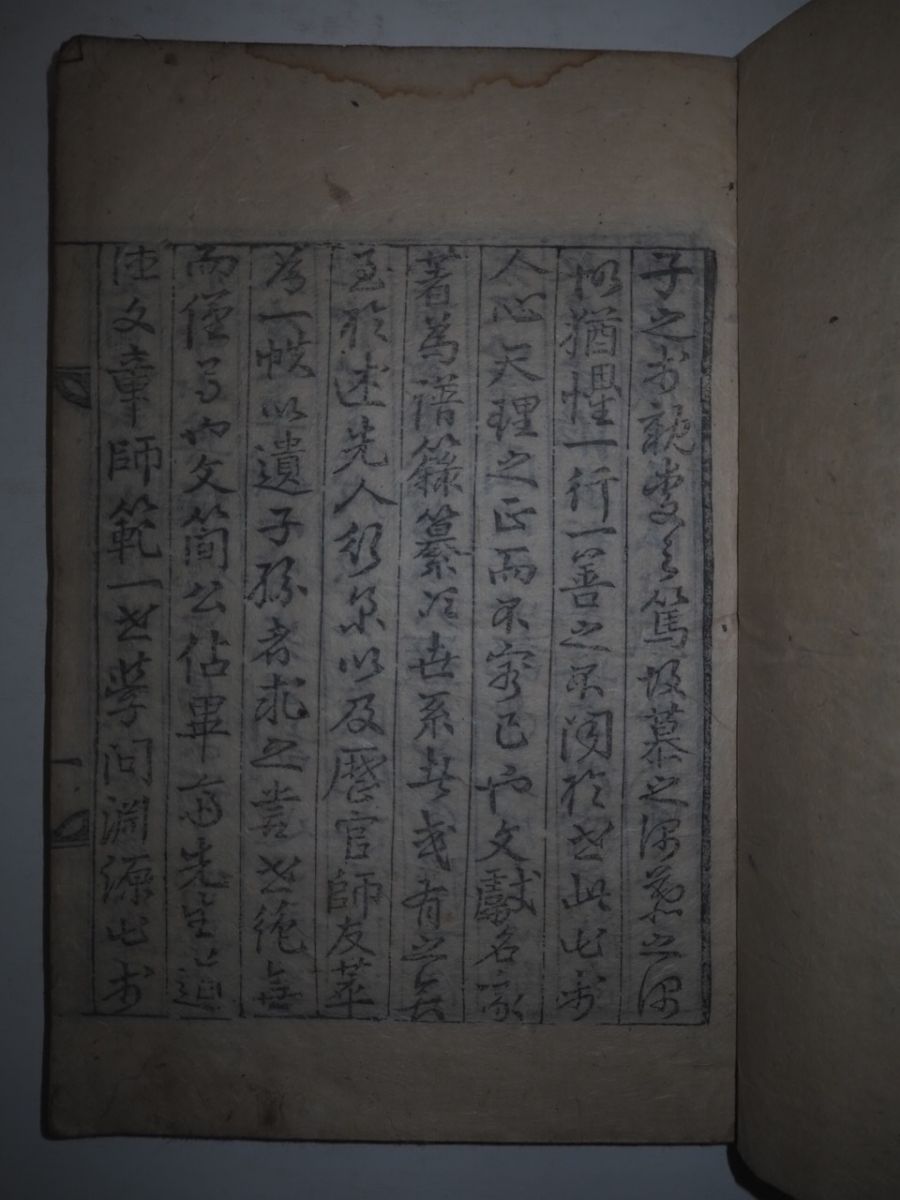 子之於親愛之篤故慕之深慕之深
故猶懼一行一善之不聞於世此出於
人心天理之正而不容已也文獻名家
著爲譜籙纂次世系者或有之矣
至於述先人行系以及歷官師友萃
爲一帙以遺子孫者求之當世絶無
而僅有也文簡公佔畢齋先生道
德文章師範一世學問淵源出於